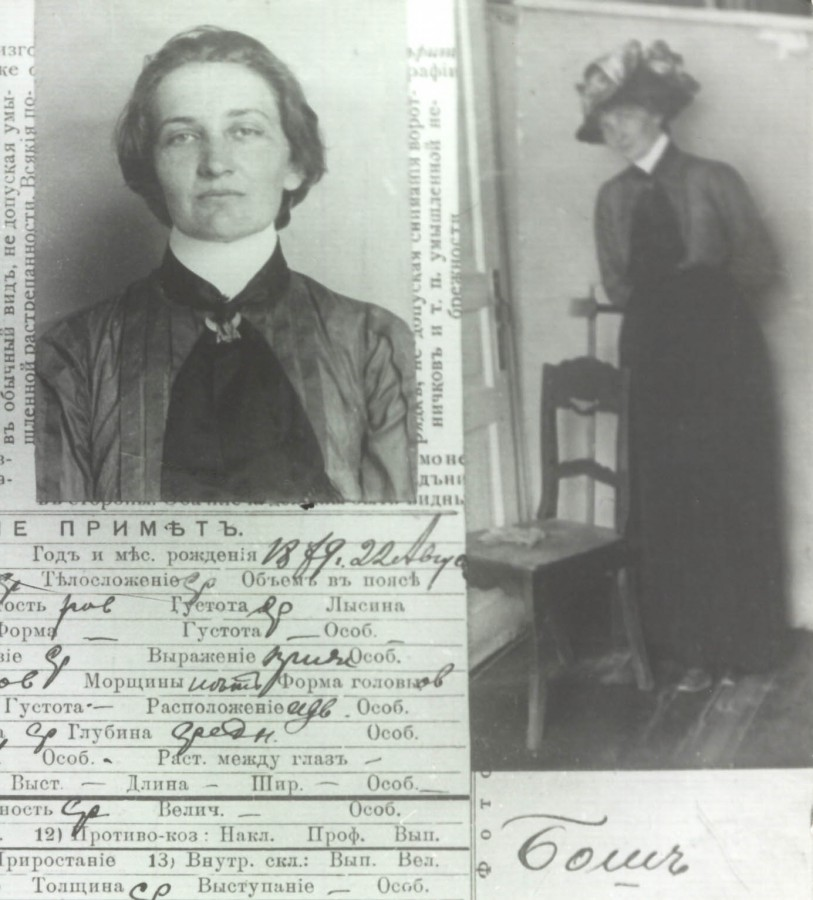 изго
же
въ обычный видъ, не допуская умы-
шленной растрепанности. Всякія по-
рафіи
рядкѣ, не допуская сниманія ворот-
ничковъ и т. п. умышленной не-
брежности
з-
а-
може
видны
Е ПРИМѢТЪ.
Годъ и мѣс. рожденія 1879. 22
Тѣлосложеніе ср Объемъ въ поясѣ
ость ров Густота ср Лысина
Форма — Густота — Особ.
віе ср Выраженіе Особ.
ов Морщины нѣтъ Форма головы ов
Густота — Расположеніе Особ.
ср Глубина средн. Особ.
Особ. Раст. между глазъ —
Выст. — Длина — Шир. — Особ. —
ность ср Велич. — Особ.
12) Противо-коз: Накл. Проф. Вып.
Приростаніе 13) Внутр. скл.: Вып. Вел.
Толщина ср Выступаніе — Особ.
Фото
Бошъ